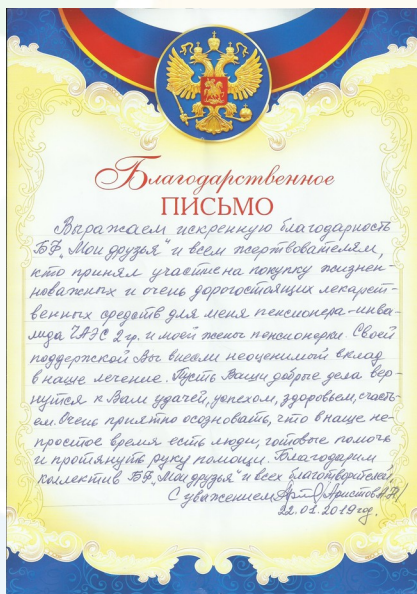 Благодарственное
ПИСЬМО
Выражаем искреннюю благодарность
БФ „Мои друзья" и всем жертвователям,
кто принял участие на покупку жизнен-
новажных и очень дорогостоящих лекарст-
венных средств для меня пенсионера-инва-
лида ЧАЭС 2 гр. и моей жены пенсионерки. Своей
поддержкой Вы внесли неоценимый вклад
в наше лечение. Пусть Ваши добрые дела вер-
нутся к Вам удачей, успехом, здоровьем, счасть-
ем. Очень приятно осозновать, что в наше не-
простое время есть люди, готовые помочь
и протянуть руку помощи. Благодарим
коллектив БФ „Мои друзья" и всех благотворителей.
С уважением /Аристов
22.01.2019 год.